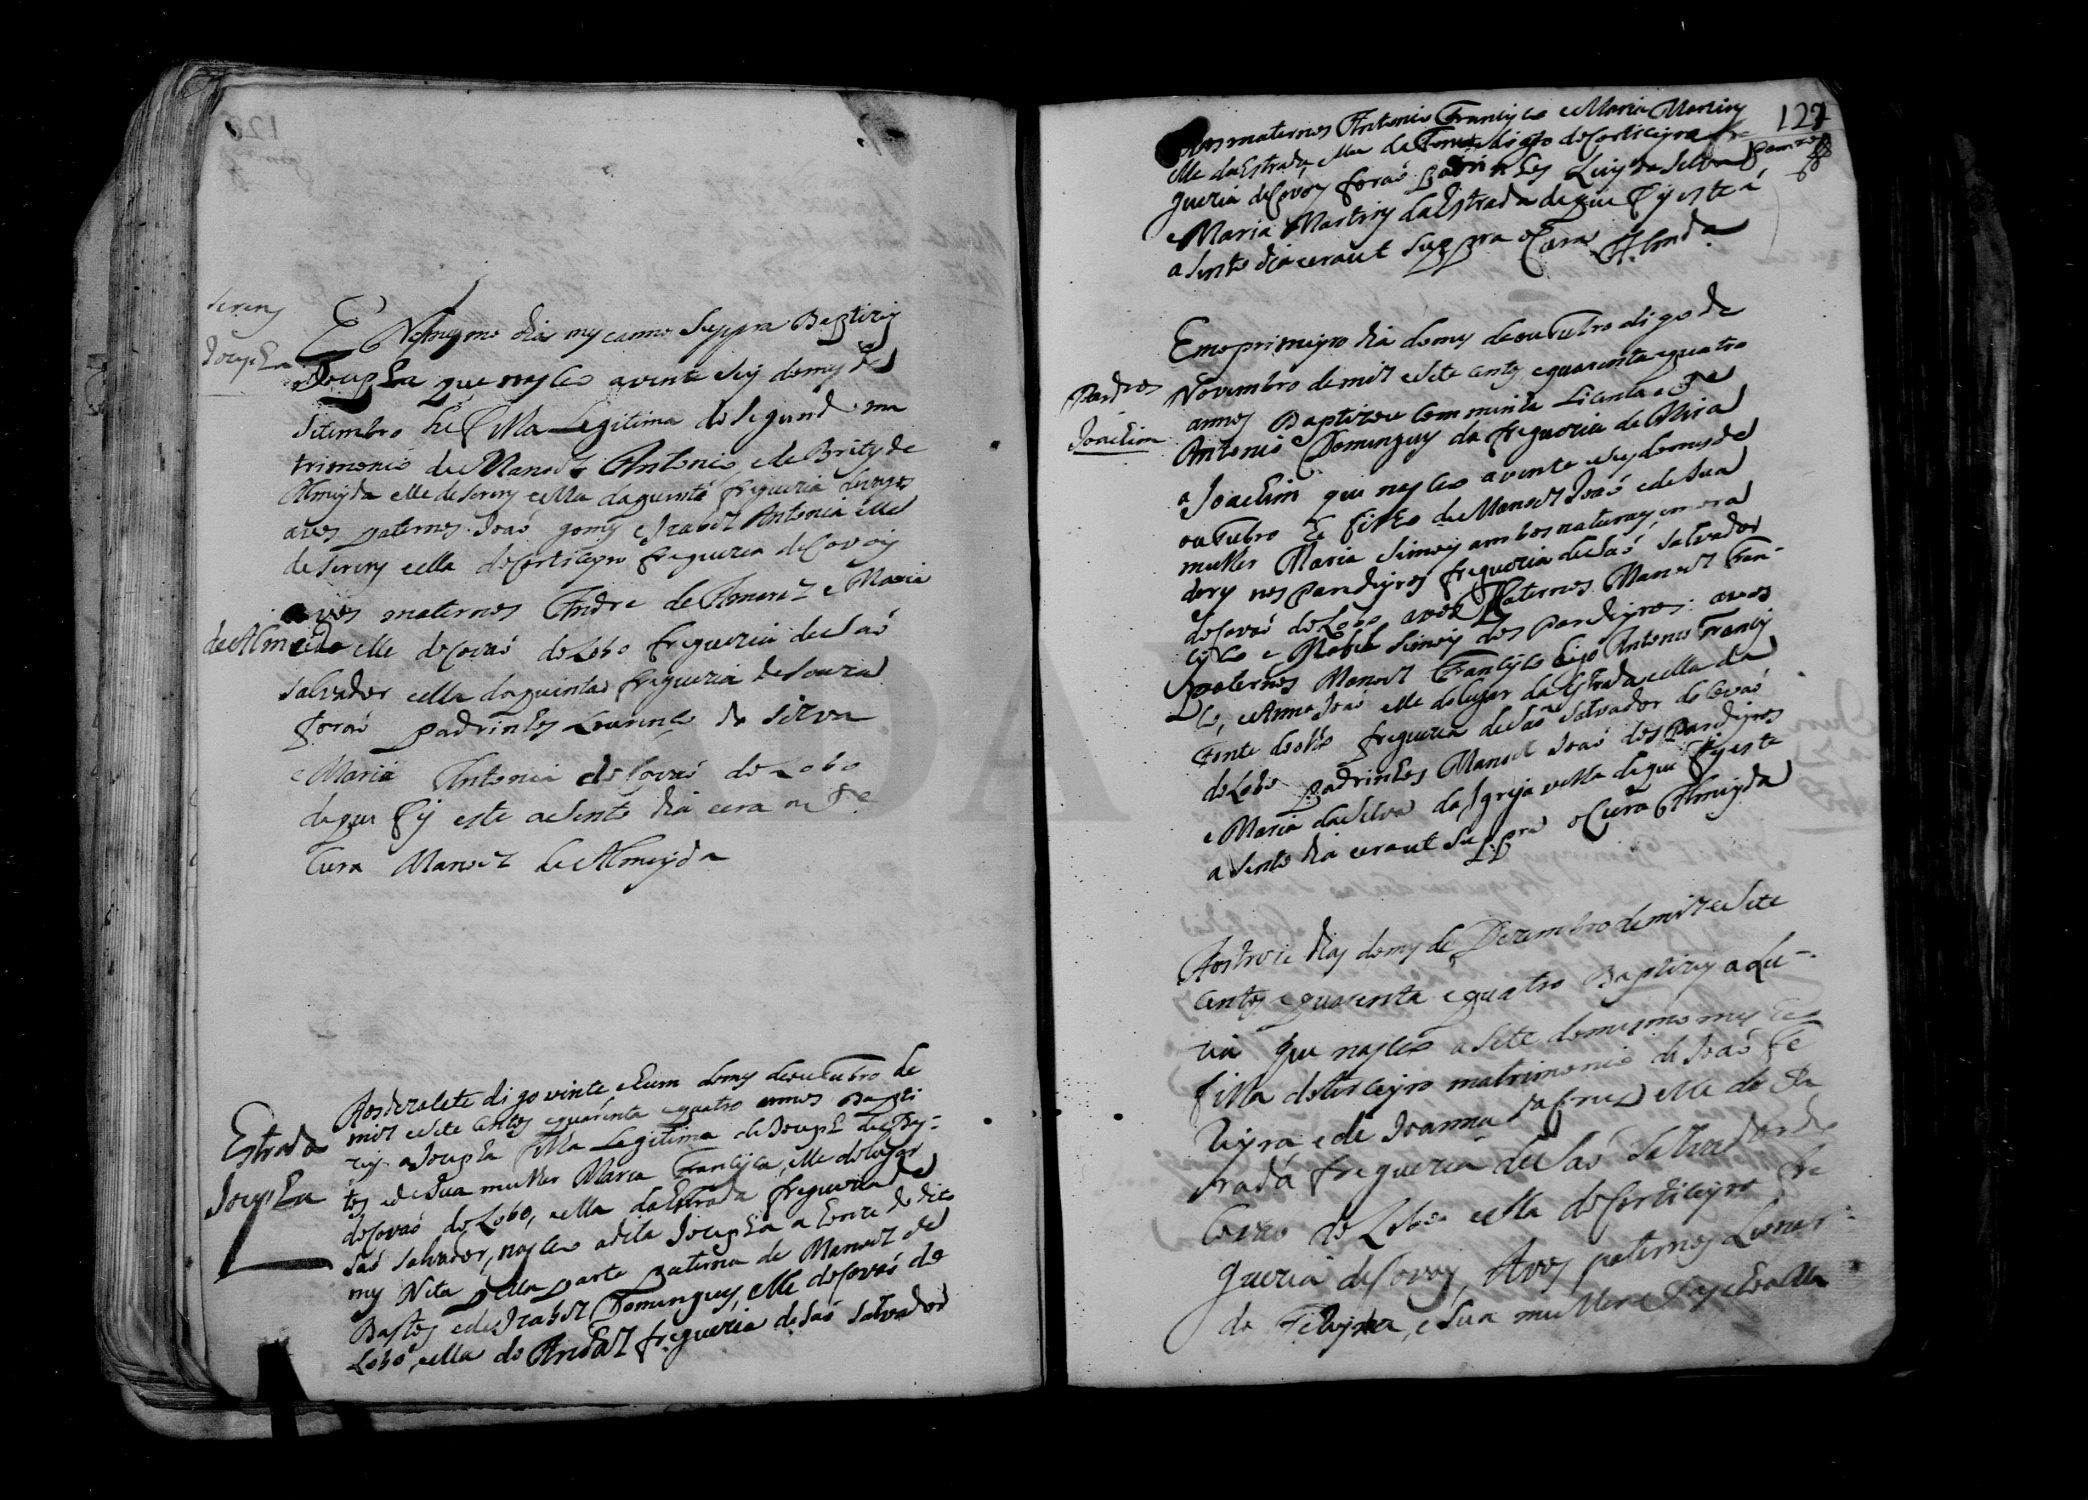 Sereny
Josepha
E No mesmo dia mes e anno suppra Baptizei
a Josepha que nasceo a vinte seis do mes de
Setembro he filha Legitima do segundo ma
trimonio de Manoel Antonio, e de Brites de
Almeyda elle de sereny e ella da quinta freguezia de
avos paternos Joaõ gomes e Izabel Antonia elle
de sereny e ella do Corticeyro freguezia de Covoẽs
avos maternos Andre de e Maria
de Almeida elle de Covaõ do Lobo freguezia de Saõ
Salvador e ella da quinta freguezia de Souza
foraõ padrinhos Lourenço da Silva
e Maria Antonia do Covaõ do Lobo
de que fis este asento dia era
Cura Manoel de Almeyda
Estrada
Josepha
Aos dezasete digo vinte e hum do mes de outubro de
mil e sete centos e quarenta e quatro annos Bapti
zei a Josepha filha Legitima de Joseph de Bas-
tos e de sua mulher Maria Francisca, elle do lugar
do Covaõ do Lobo, e ella da Estrada freguezia de
Saõ Salvador, nasceo a dita Josepha a honze do dito
mes Neta pella parte paterna de Manoel de
Bastos e de Izabel Domingues, elle do Covaõ do
Lobo, e ella do Areal freguezia de Saõ Salvador
127
Avos maternos Antonio Francisco e Maria Martins
elle da Estrada, ella da digo do Corticeyro fre
guezia de Covoẽs foraõ padrinhos Luis da Silva
e Maria Martins da Estrada de que fis este a
asento dia era ut suppra o Cura Almeyda
Pardros
Joachim
Em o primeyro dia do mes de outubro digo de
Novembro de mil e sete centos e quarenta e quatro
annos Baptizou com minha Licença o Pe
Antonio Domingues da freguezia de Mira
a Joachim que nasceo a vinte e seis do mes de
outubro he filho de Manoel Joaõ e de sua
mulher Maria Simois ambos naturais e mora
dores nos Pardeyros freguezia de Saõ Salvador
do Covaõ do Lobo avos Paternos Manoel Fran-
cisco e Simois dos Pardeyros: avos
paternos Manoel Francisco digo Antonio Francis
co, e Anna Joaõ elle do lugar da Estrada e ella da
Fonte do freguezia de Saõ Salvador do Covaõ
do Lobo padrinhos Manoel Joaõ dos Pardeyros
e Maria da Silva da Igreja velha de que fis este
a sento dia era ut suppra o Cura Almeyda
Aos treze dias do mes de Dezembro de mil e sete
centos e quarenta e quatro Baptizei a Lu-
zia que nasceo a sete do mesmo mes he
filha do terceyro matrimonio de Joaõ Fe
Reyra e de Joanna da Cruz elle do
freguezia de Saõ Salvador do
Covaõ do Lobo e ella do Corticeyro fre
guezia de Covoẽs, Avos paternos
da e sua mulher